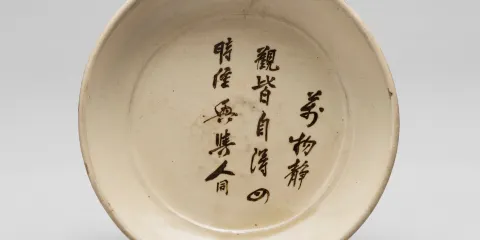 萬物靜
觀皆自得四
時佳興與人同